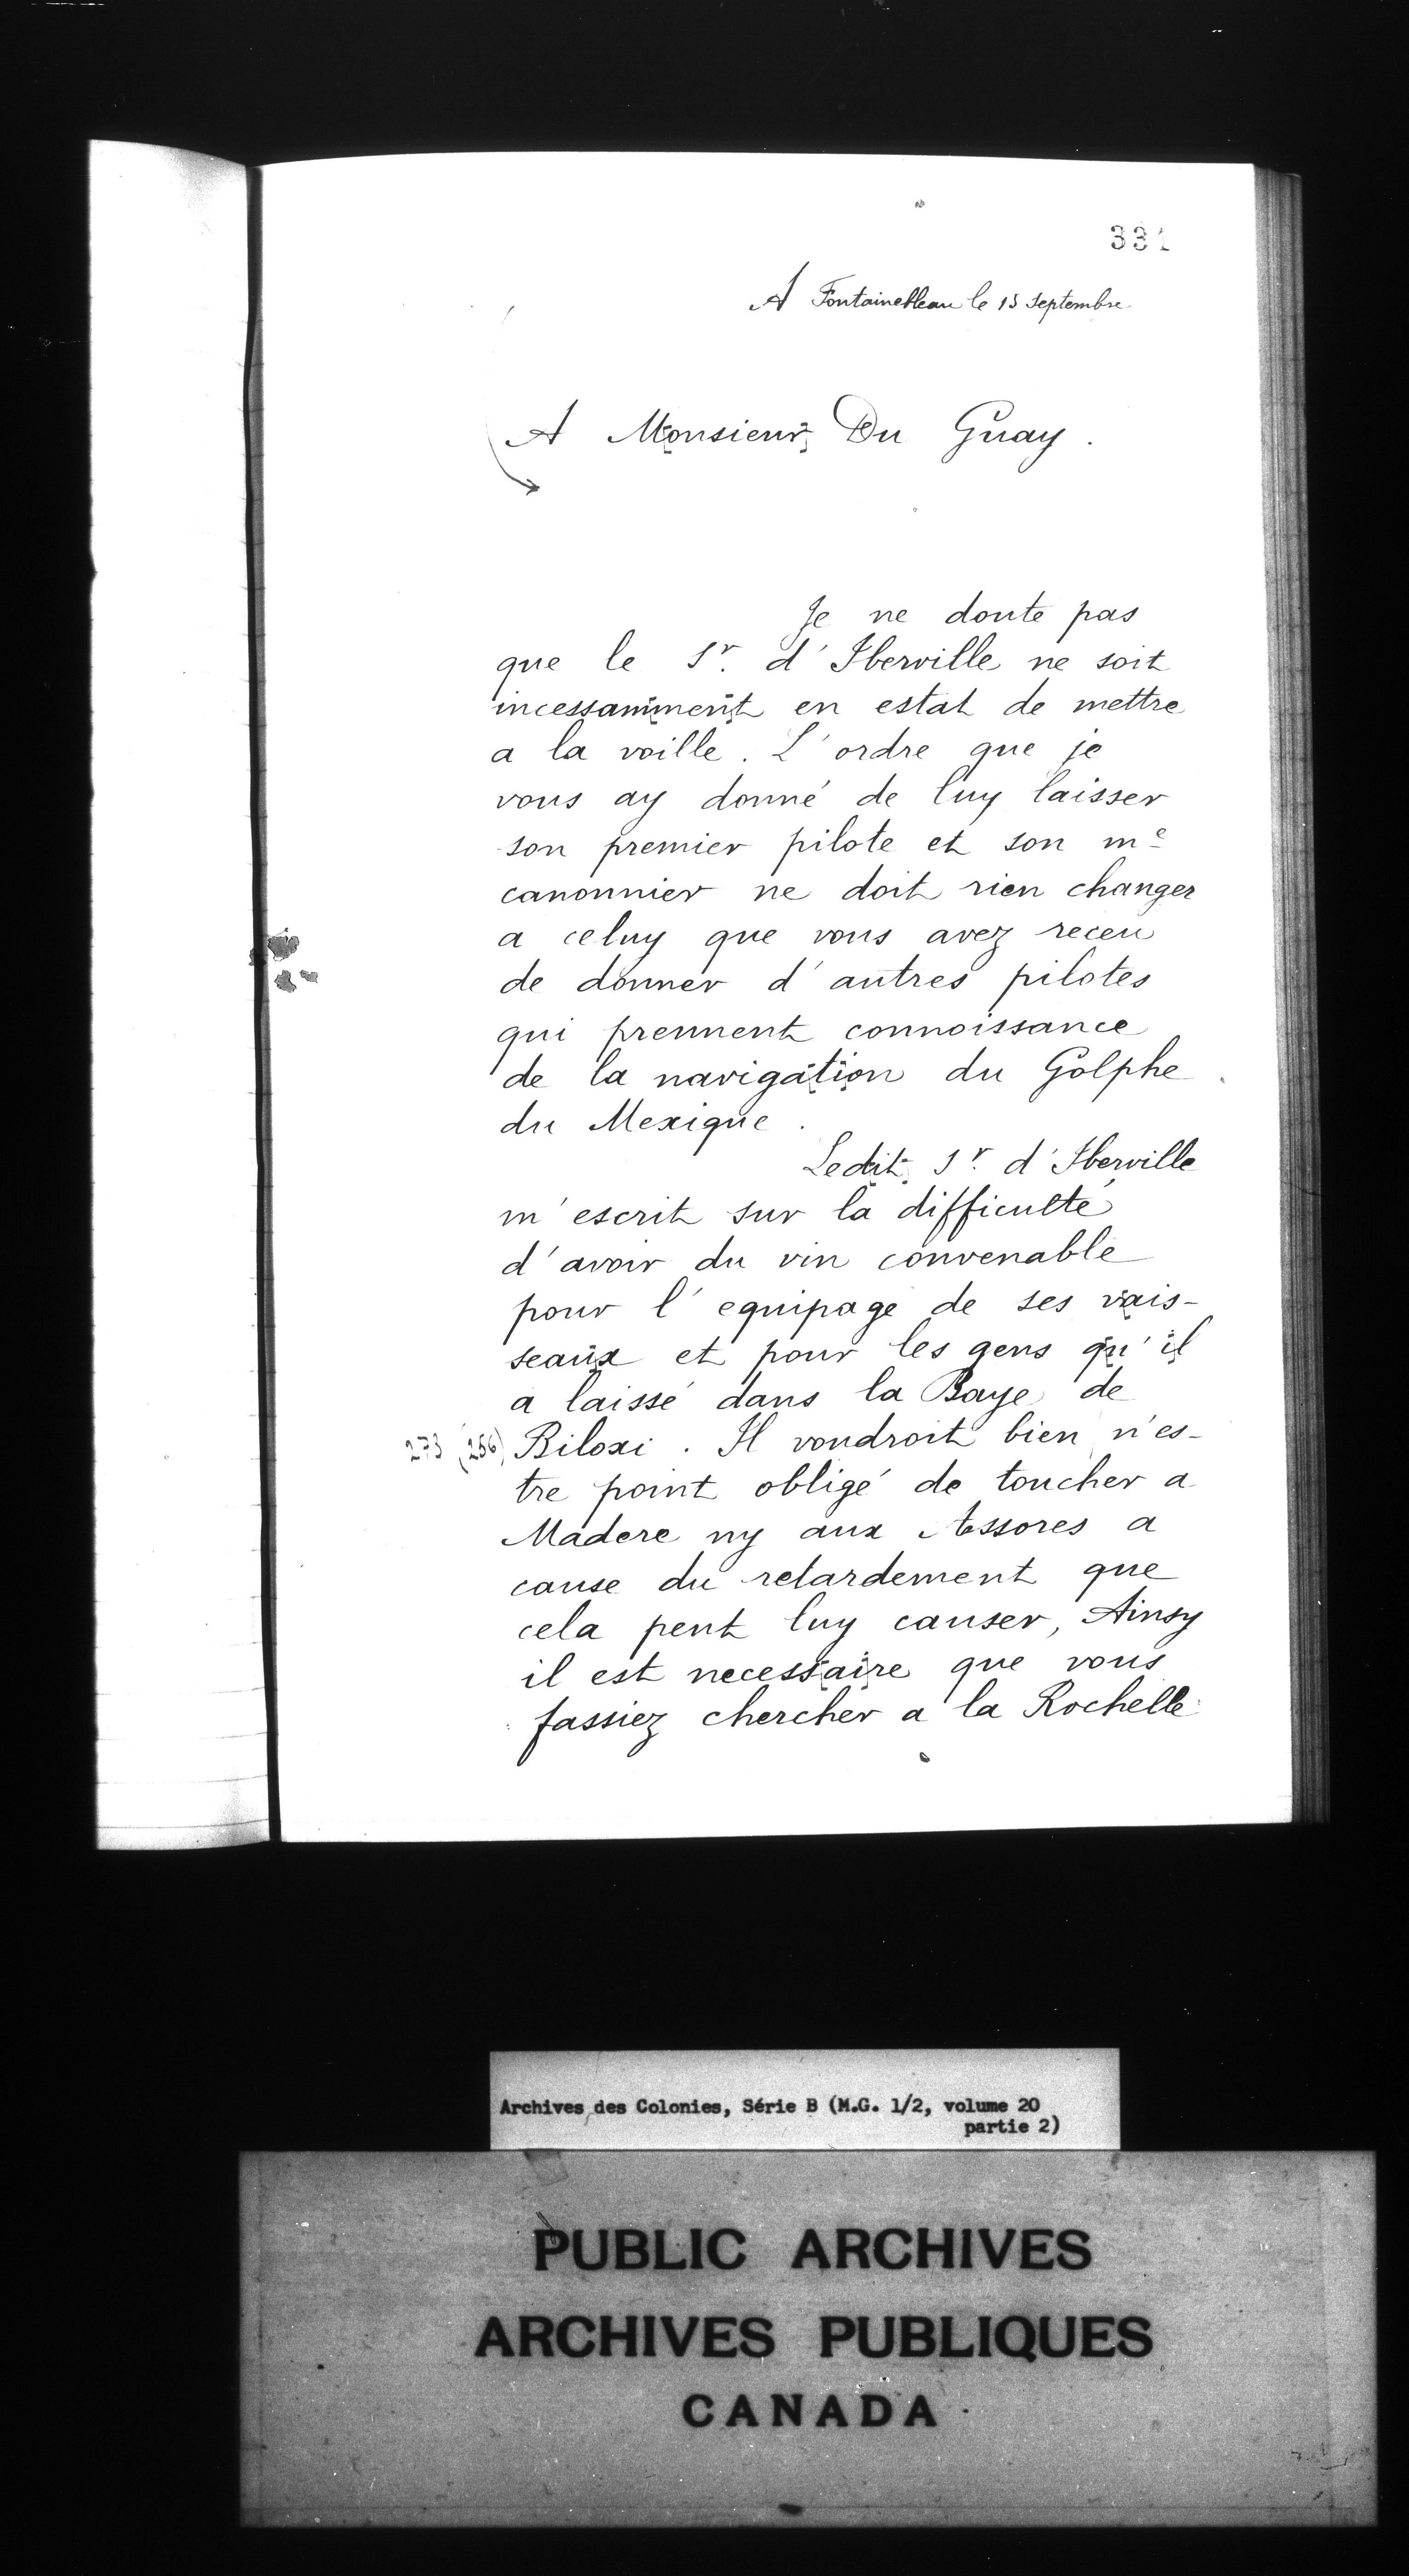 331
A Fontainebleau le 15 Septembre
A Monsieur Du Guay.
Je ne doute pas
que le Sr. d'Iberville ne soit
incessamment en estat de mettre
a la voille. L'ordre que je
vous ay donné de luy laisser
son premier pilote et son me
canonnier ne doit rien changer
a celuy que vous avez receu
de donner d'autres pilotes
qui prennent connoissance
de la navigation du Golphe
du Mexique.
Ledit Sr. d'Iberville
m'escrit sur la difficulté
d'avoir du vin convenable
pour l'equipage de ses vais-
seaux et pour les gens qu'il
a laissé dans la Baye de
273 (256) Biloxi. Il voudroit bien n'es-
tre point obligé de toucher a
Madere ny aux Assores a
cause du retardement que
cela peut luy causer, Ainsy
il est necessaire que vous
fassiez chercher a la Rochelle
Archives des Colonies, Série B (M.G. 1/2, volume 20
partie 2)
PUBLIC ARCHIVES
ARCHIVES PUBLIQUES
CANADA